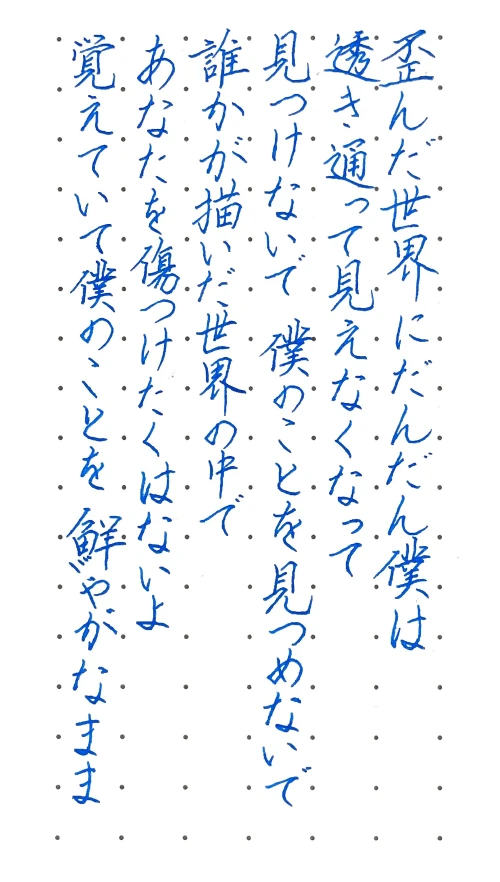 歪んだ世界にだんだん僕は
透き通って見えなくなって
見つけないで 僕のことを見つめないで
誰かが描いだ世界の中で
あなたを傷つけたくはないよ
覚えていて僕のことを 鮮やがなまま